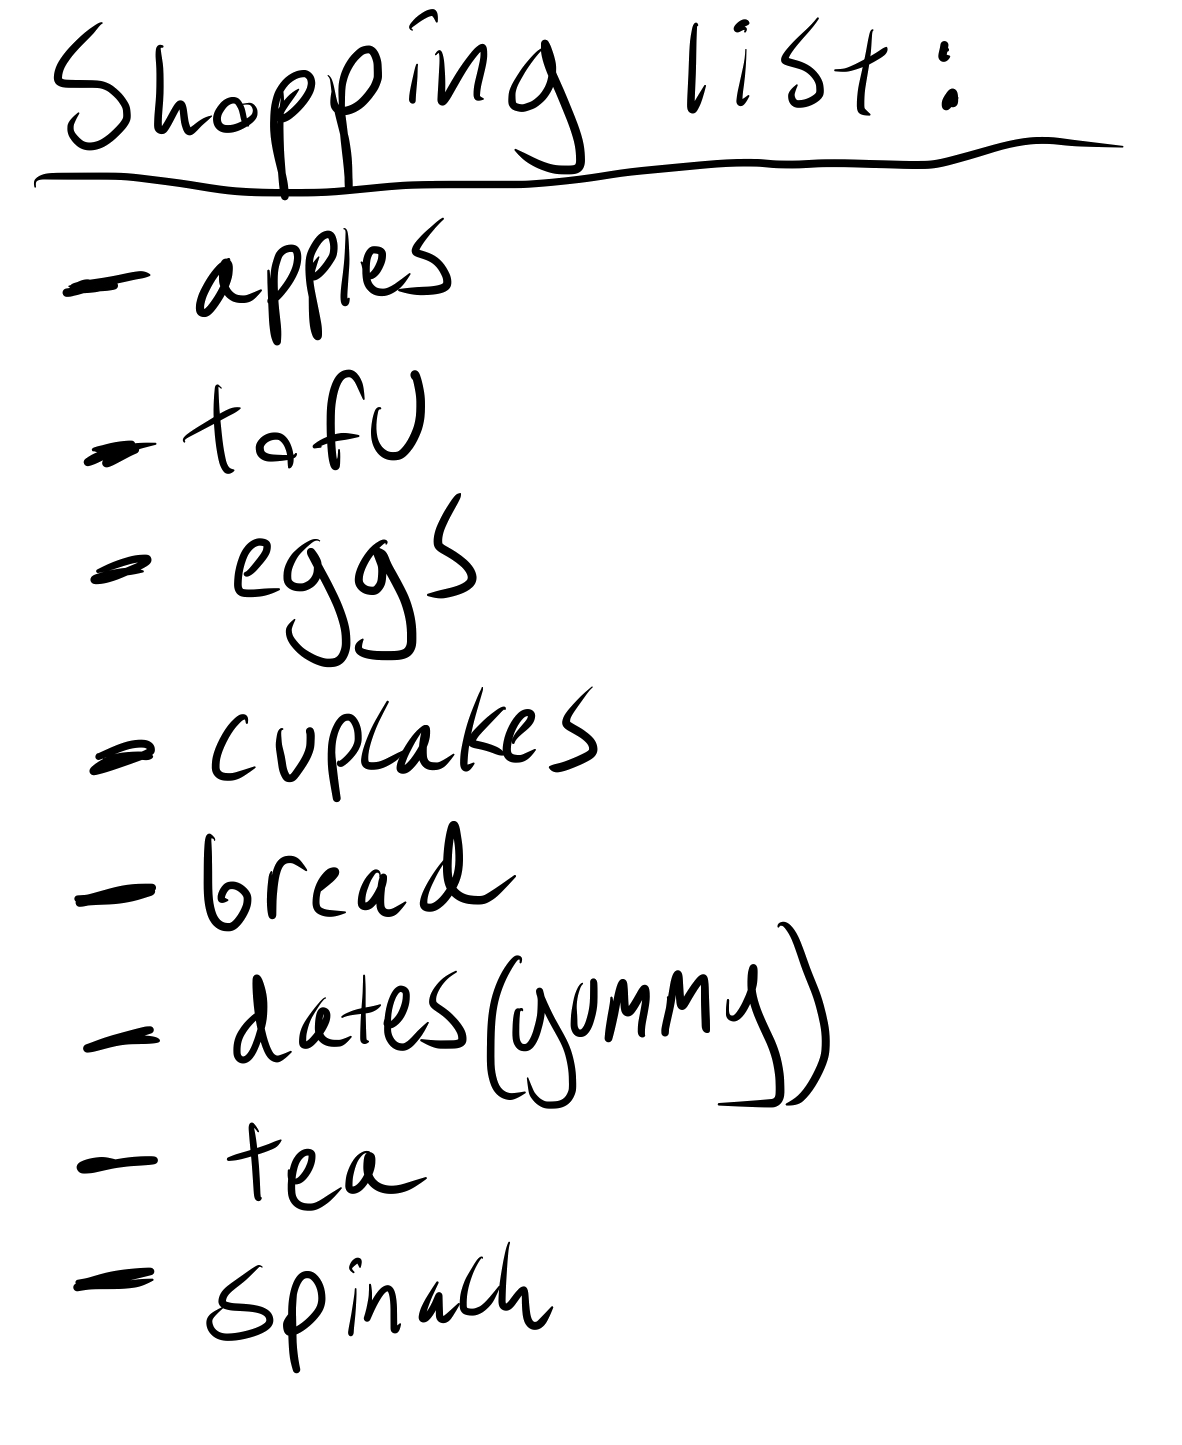 Shopping list:
- apples
- tofu
- eggs
- cupcakes
- bread
- dates (yummy)
- tea
- spinach